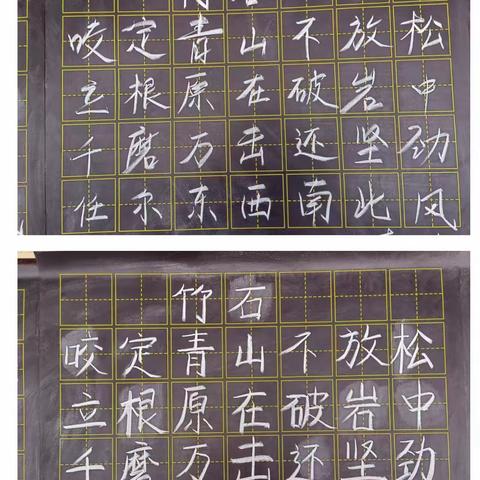 竹石
咬定青山不放松
立根原在破岩中
千磨万击还坚劲
任尔东西南北风
竹石
咬定青山不放松
立根原在破岩中
千磨万击还坚劲